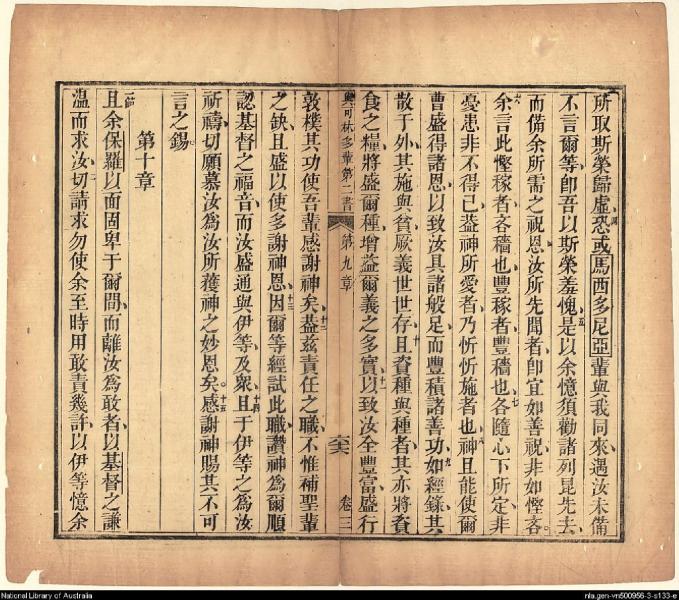 所取斯榮歸虛恐或馬西多尼亞輩與我同來遇汝未備
不言爾等卽吾以斯榮羞愧五是以余憶須勸諸列昆先去
而備余所需之祝恩汝所先聞者卽宜如善祝非如慳吝
六余言此慳稼者吝穡也豐稼者豐穡也七各隨心下所定非
憂患非不得已葢神所愛者乃忻忻施者也八神且能使爾
曹盛得諸恩以致汝具諸般足而豐積諸善功九如經錄其
散于外其施與貧厥義世世存十且資種與種者其亦將資
食之糧將盛爾種增益爾義之多實十一以致汝全豐富盛行
與可林多輩第二書 第九章 卷三
敦樸其功使吾輩感謝神矣十二葢茲責任之職不惟補聖輩
之缺且盛以使多謝神恩十三因爾等經試此職讚神為爾順
認基督之福音而汝盛通與伊等及衆十四且于伊等之為汝
祈禱切願慕汝為汝所穫神之妙恩矣十五感謝神賜其不可
言之錫
第十章
一節且余保羅以面固卑于爾間而離汝為敢者以基督之謙
溫而求汝二切請求勿使余至時用敢責幾許以伊等憶余
National Library of Australia
nla.gen-vn500956-3-s133-e